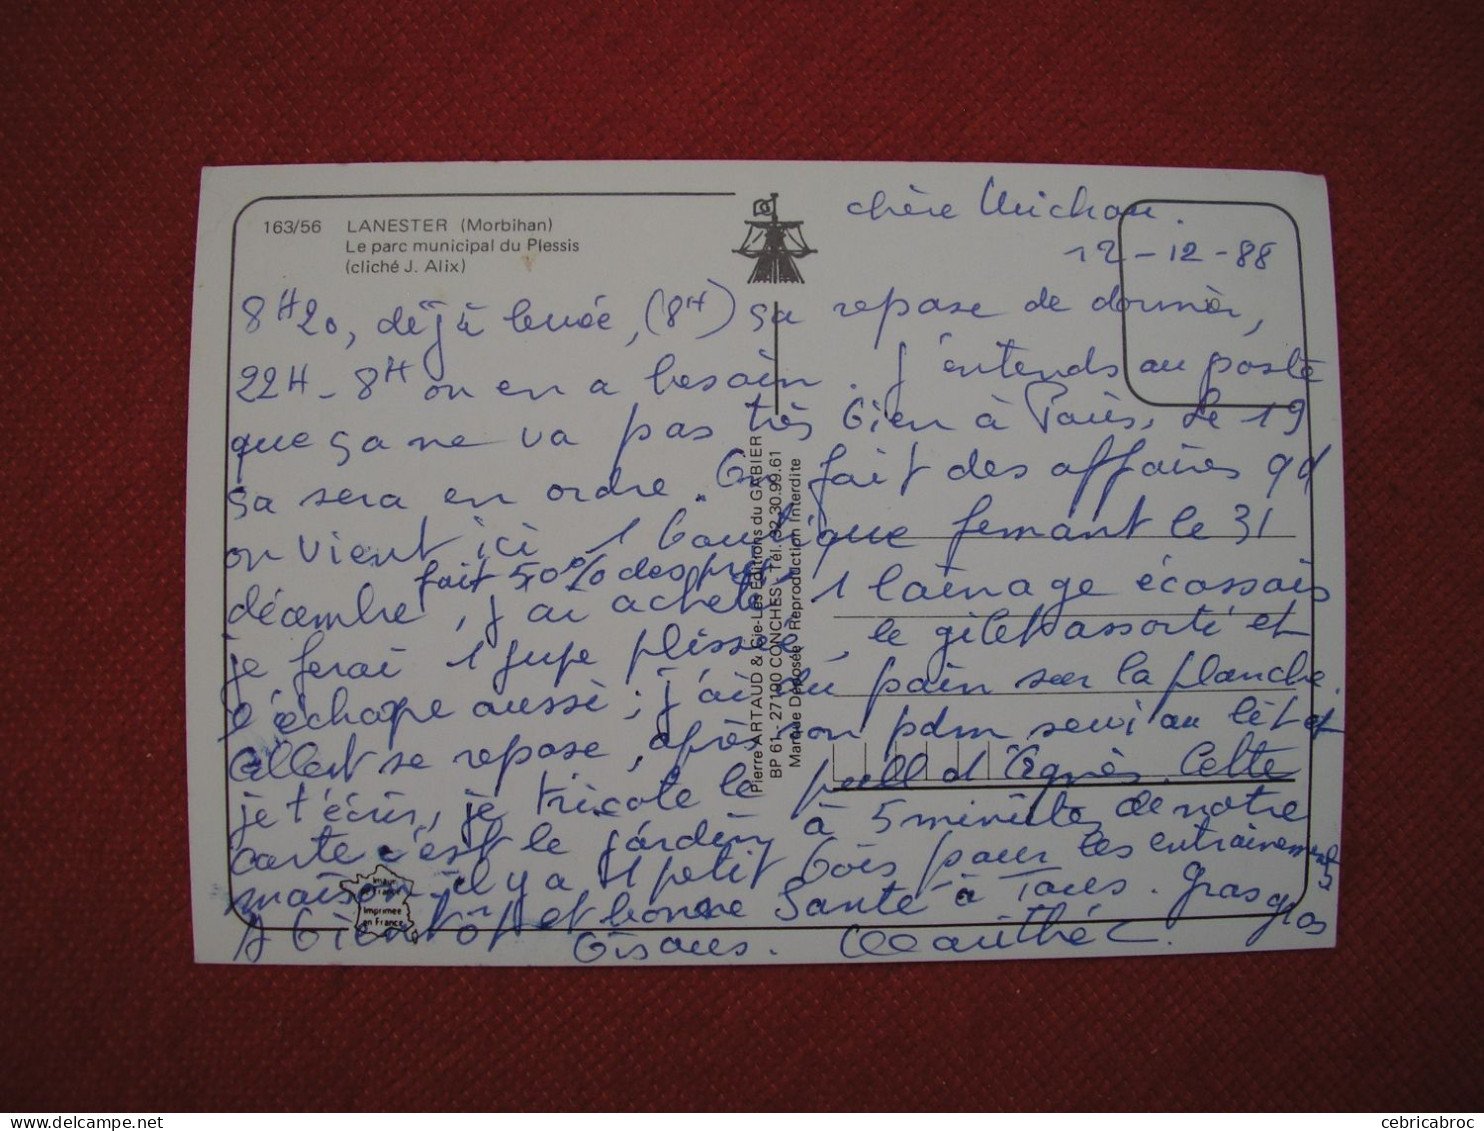 163/56 LANESTER (Morbihan)
Le parc municipal du Plessis
(cliché J. Alix)
chère Michou.
12-12-88
8H20, déjà levée, (8H) ça repose de dormir,
22H-8H on en a besoin. J'entends au poste
que ça ne va pas très bien à Paris, le 19
ça sera en ordre. On fait des affaires qd
on vient ici 1 boutique fermant le 31
décembre, fait 50% des prix
j'ai acheté, 1 lainage écossais
je ferai 1 jupe plissée, le gilet assorti et
l'échape aussi; j'ai du pain sur la planche.
Albert se repose, après son pdm servi au lit et
je t'écris, je tricote le pull d'Agnès. Cette
carte c'est le jardin à 5 minutes de notre
maison il y a 1 petit bois pour les entrainements
A bientôt et bonne Santé à Tous. Gros gros
Bisous.
Pierre ARTAUD & Cie - Les Editions du GABIER
BP 61 - 27190 CONCHES - Tél. 32.30.99.61
Marque Déposée - Reproduction Interdite
Imprimée
en France
cebricabroc